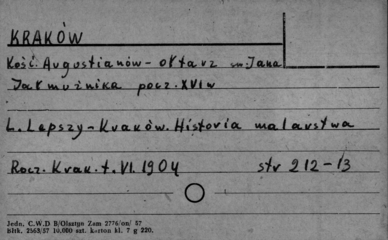 KRAKÓW
Kość. Augustianów - ołtarz św. Jana
Jałmużnika pocz. XVI w
L. Lepszy - Kraków. Historia malarstwa
Rocz. Krak. t. VI. 1904 str 212-13
Jedn. C.W.D B/Olsztyn Zam 2776/on/ 57
Błtk. 2569/57 10.000 szt. karton kl. 7 g 220.